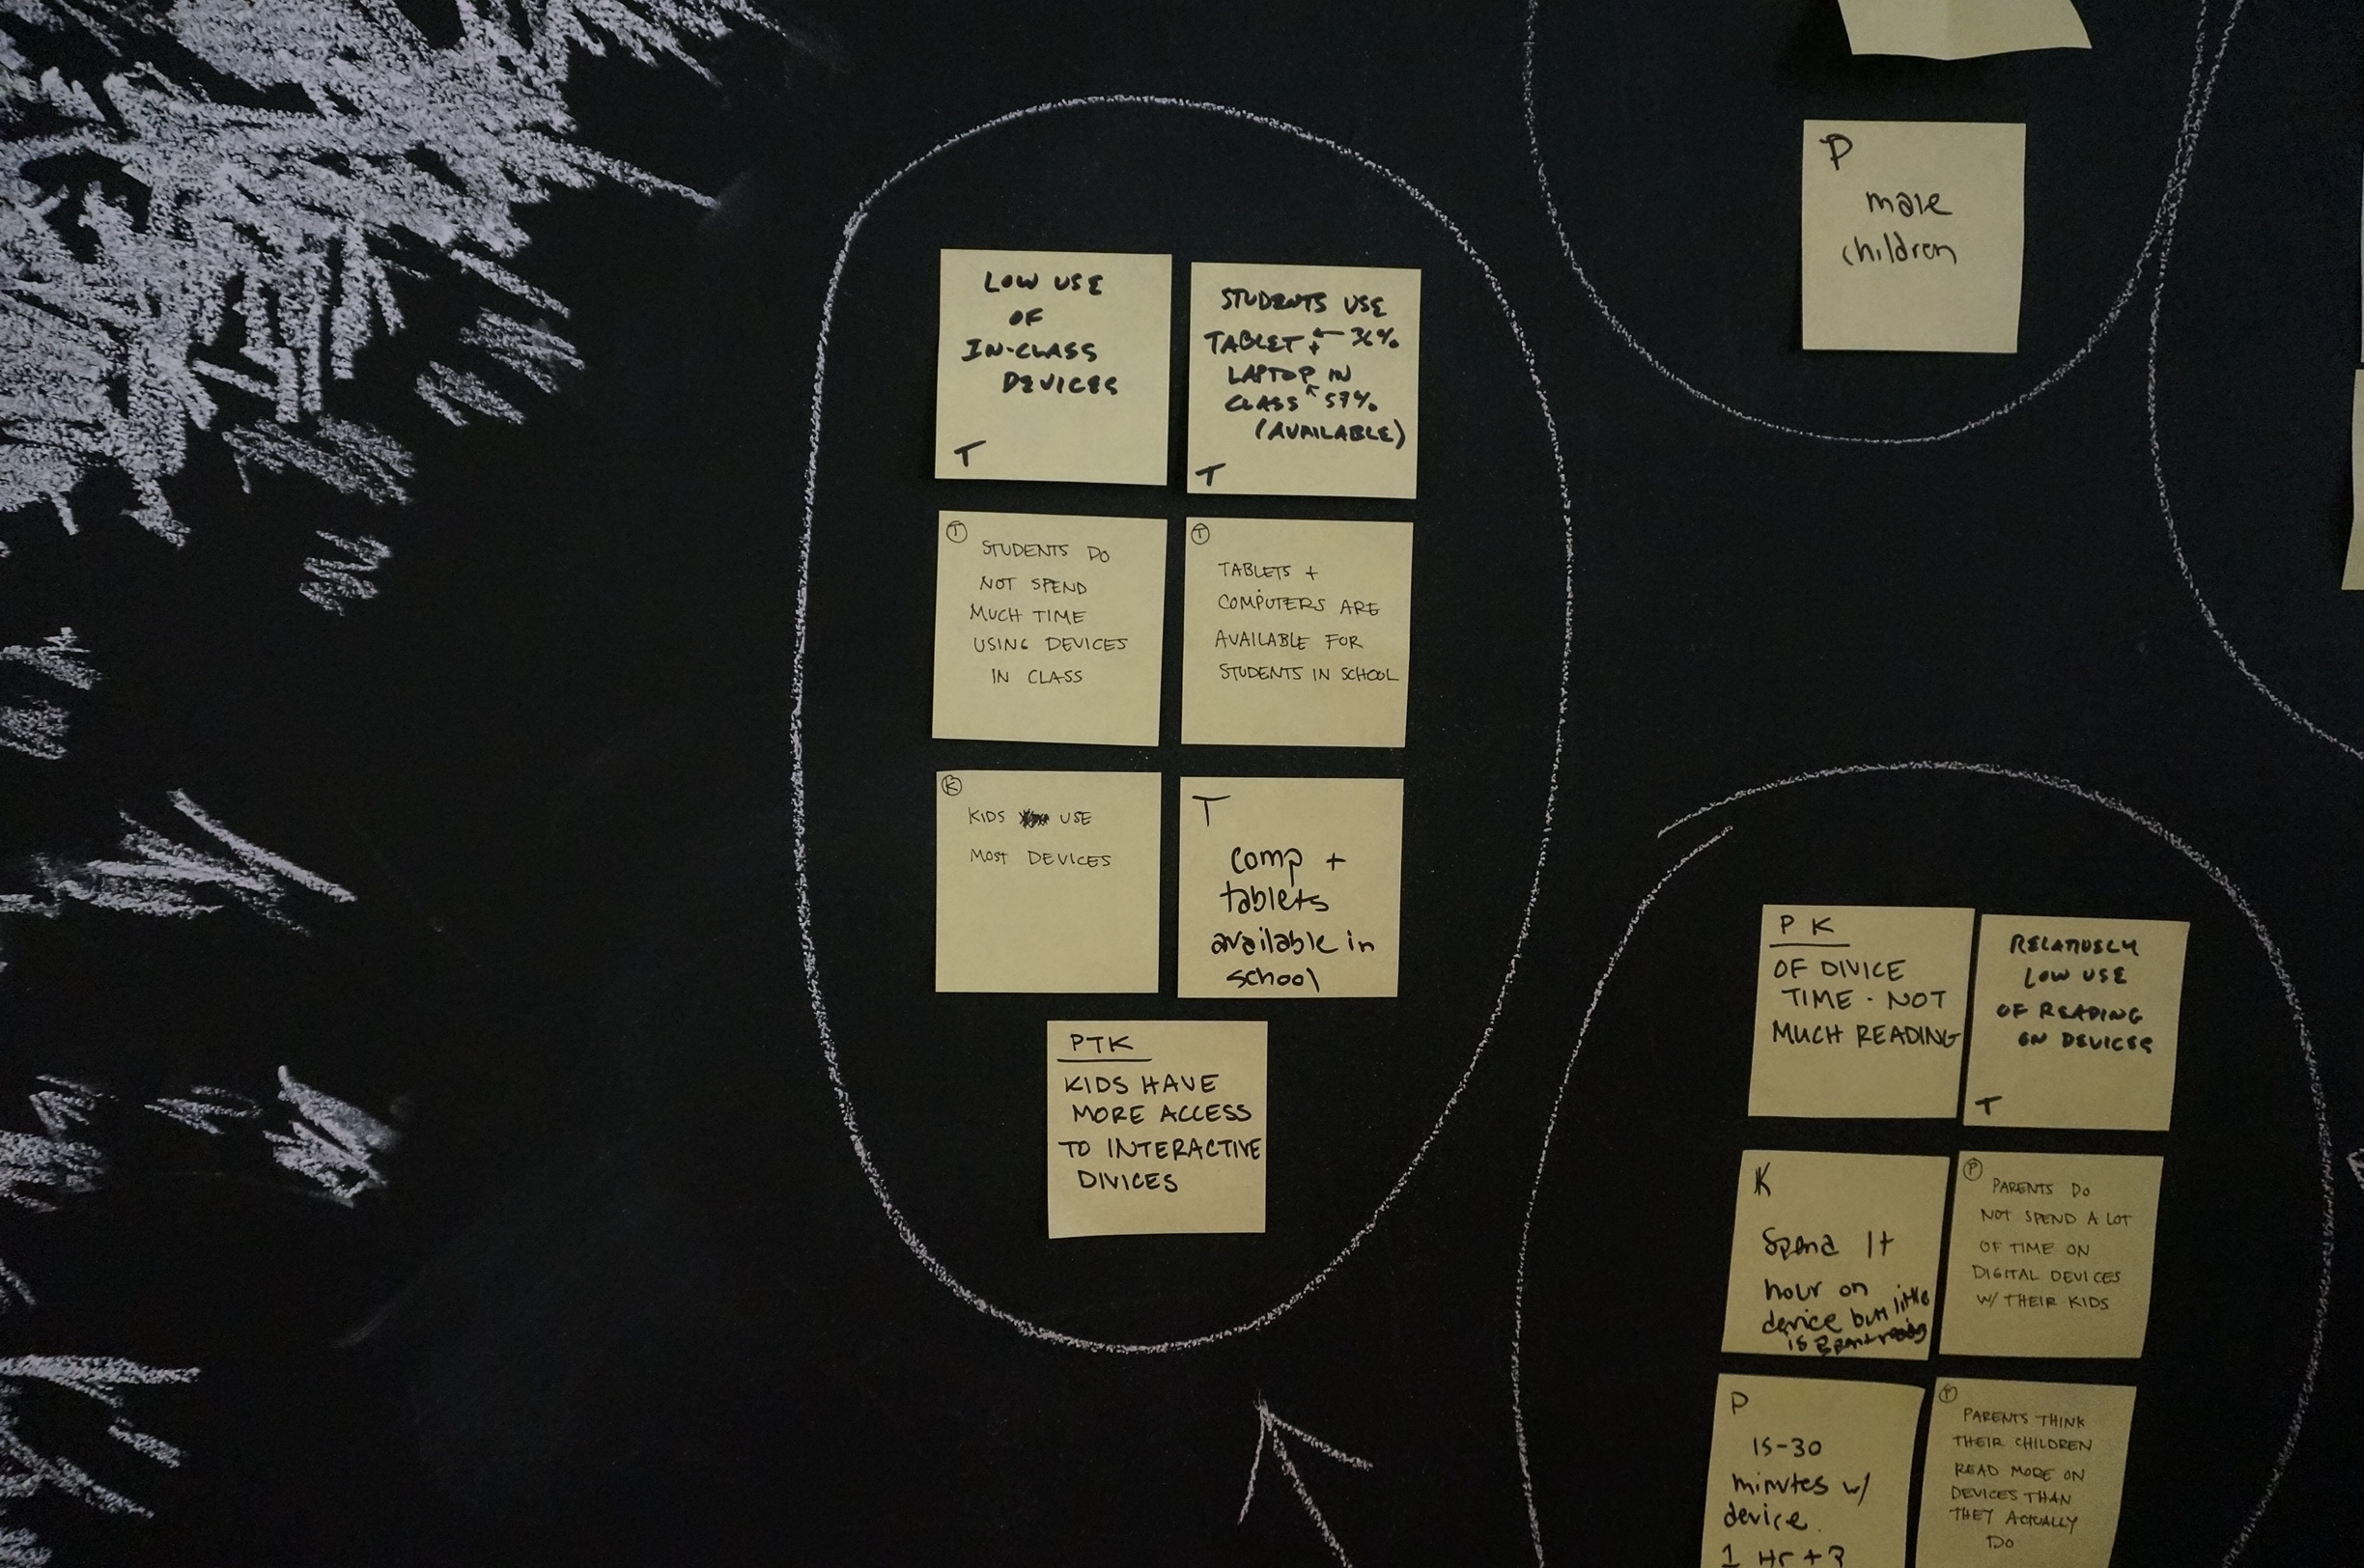 P
male
children
LOW USE
OF
IN-CLASS
DEVICES
T
STUDENTS USE
TABLET ← 36%
+
LAPTOP IN
CLASS ↖ 57%
(AVAILABLE)
T
T
STUDENTS DO
NOT SPEND
MUCH TIME
USING DEVICES
IN CLASS
T
TABLETS +
COMPUTERS ARE
AVAILABLE FOR
STUDENTS IN SCHOOL
K
KIDS USE
MOST DEVICES
T
Comp +
tablets
available in
school
PTK
KIDS HAVE
MORE ACCESS
TO INTERACTIVE
DIVICES
P K
OF DIVICE
TIME - NOT
MUCH READING
RELATIVELY
LOW USE
OF READING
ON DEVICES
T
K
Spend 1+
hour on
device but little
is spent reading
P
PARENTS DO
NOT SPEND A LOT
OF TIME ON
DIGITAL DEVICES
W/ THEIR KIDS
P
15-30
minutes w/
device.
1 Hr + ?
P
PARENTS THINK
THEIR CHILDREN
READ MORE ON
DEVICES THAN
THEY ACTUALLY
DO